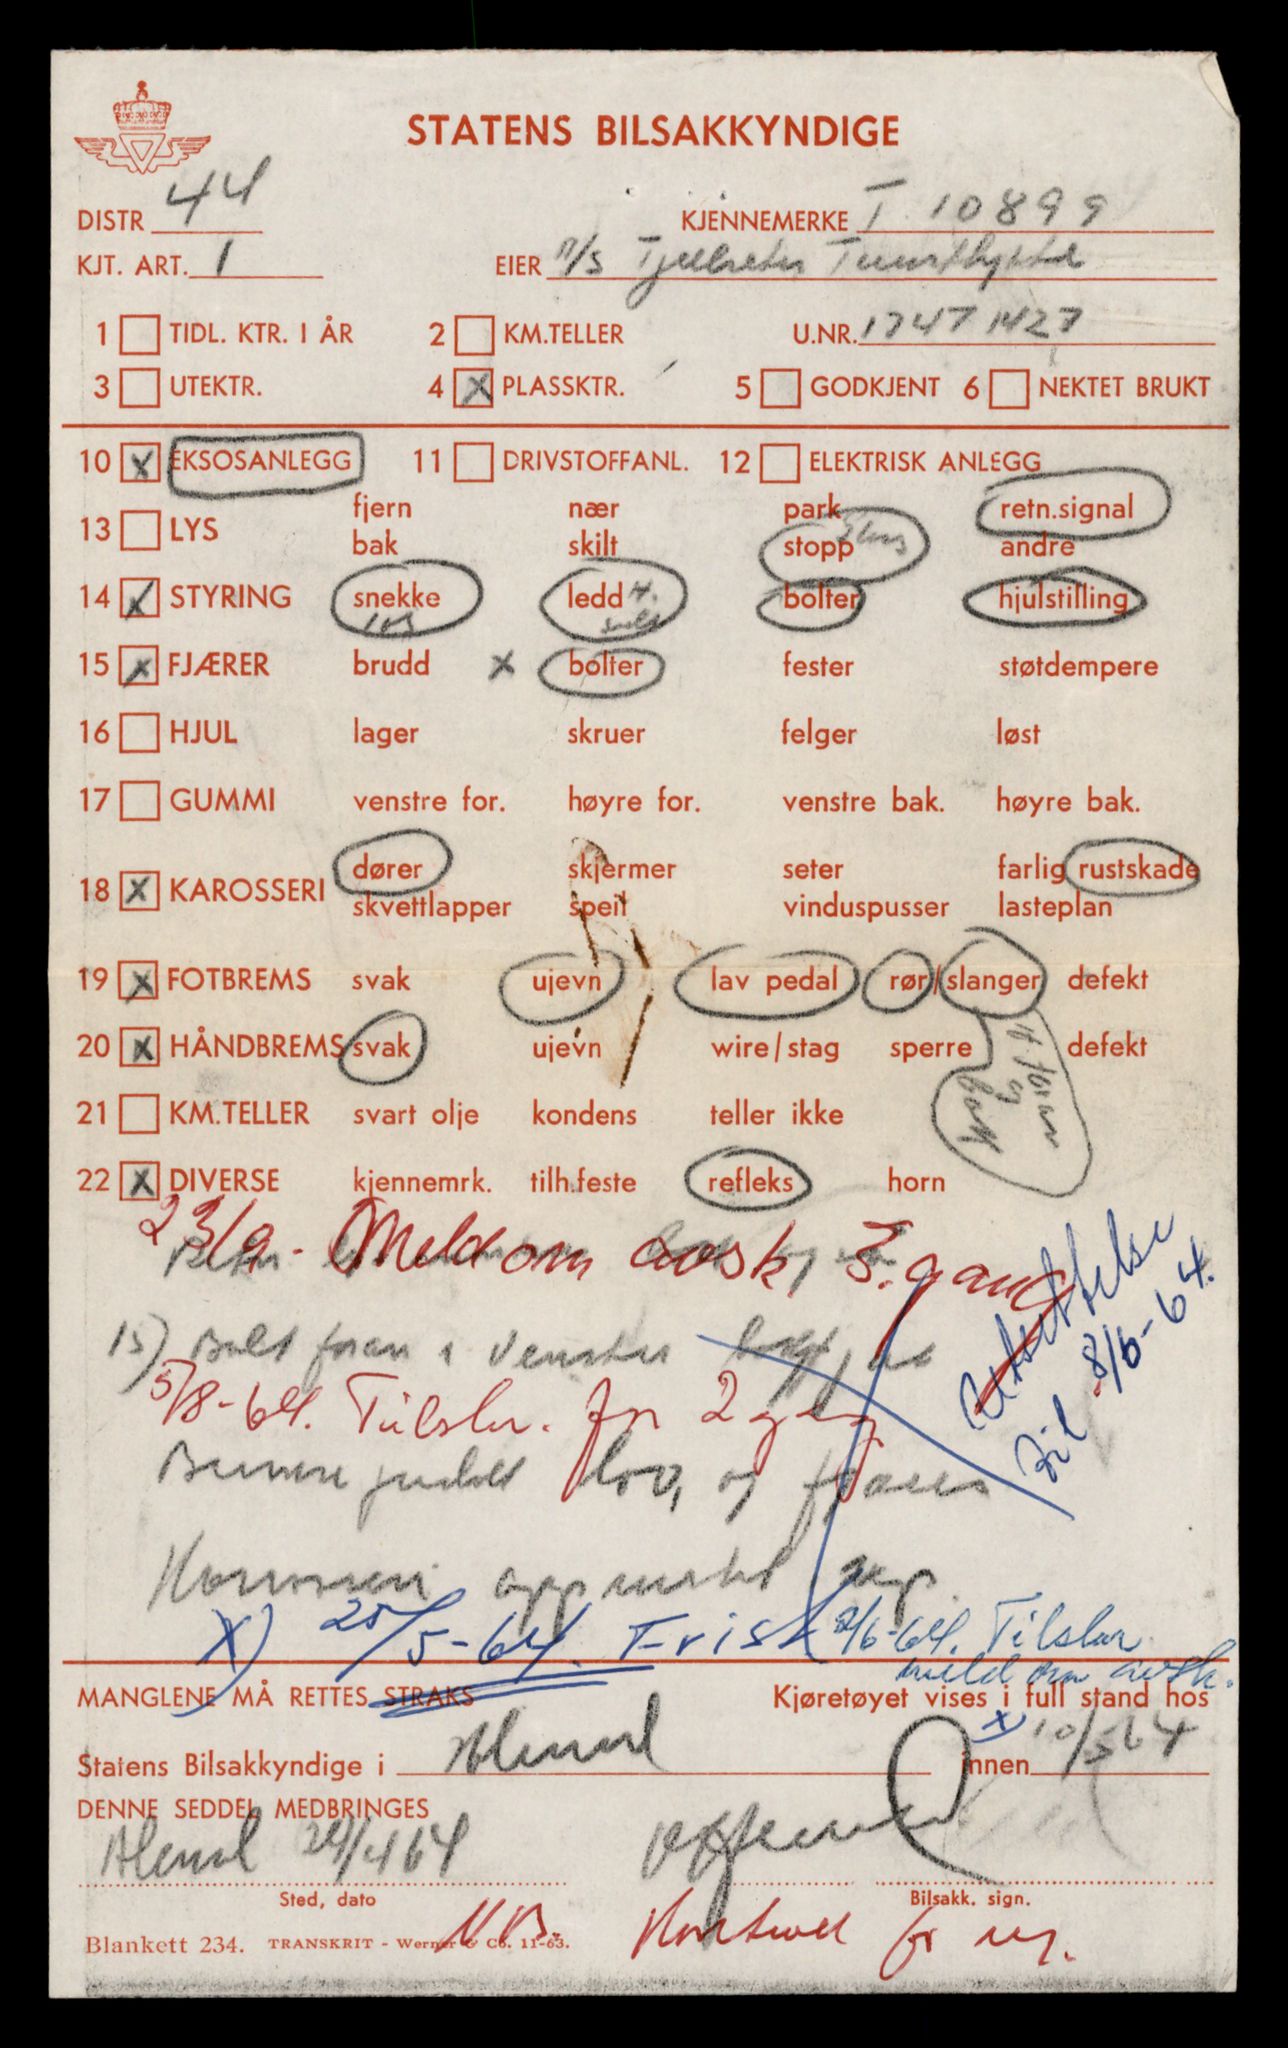 STATENS BILSAKKYNDIGE
DISTR 44
KJENNEMERKE T 10899
KJT. ART. 1
EIER
1 TIDL. KTR. I ÅR 2 KM.TELLER U.NR. 17471427
3 UTEKTR. 4 X PLASSKTR. 5 GODKJENT 6 NEKTET BRUKT
10 X EKSOSANLEGG 11 DRIVSTOFFANL. 12 ELEKTRISK ANLEGG
13 LYS fjern nær park retn.signal
bak skilt stopp andre
14 STYRING snekke ledd H. bolter hjulstilling
15 X FJÆRER brudd X bolter fester støtdempere
16 HJUL lager skruer felger løst
17 GUMMI venstre for. høyre for. venstre bak. høyre bak.
18 X KAROSSERI dører skjermer seter farlig rustskade
skvettlapper speil vinduspusser lasteplan
19 X FOTBREMS svak ujevn lav pedal rør/slanger defekt
20 X HÅNDBREMS svak ujevn wire/stag sperre defekt
H. foran og bak
21 KM.TELLER svart olje kondens teller ikke
22 X DIVERSE kjennemrk. tilh.feste refleks horn
23/9. Meld om avsk 3. gang
Utsettelse
til 8/6-64.
15) Bolt foran i venstre
5/8-64. Tilskr. for 2 gng
og
X) 25/5-64. Frist 2/6-64. Tilskr.
meld om avsk.
MANGLENE MÅ RETTES STRAKS Kjøretøyet vises i full stand hos
Statens Bilsakkyndige i Ålesund innen X 10/5 64
DENNE SEDDEL MEDBRINGES
Ålesund 24/4 64
Sted, dato Bilsakk. sign.
Blankett 234. TRANSKRIT - Werner & Co. 11-63.
NB.